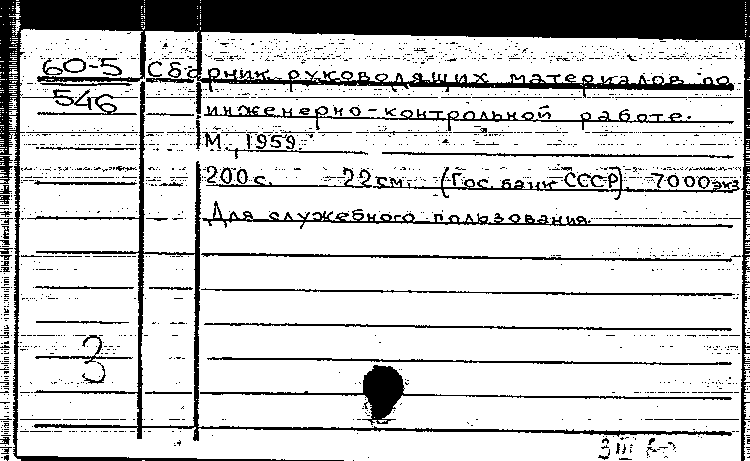 60-5 Сборник руководящих материалов по
546 инженерно-контрольной работе.
М., 1959.
200 с. 22 см. (Гос. банк СССР). 7000 экз
Для служебного пользования.
3
3 III